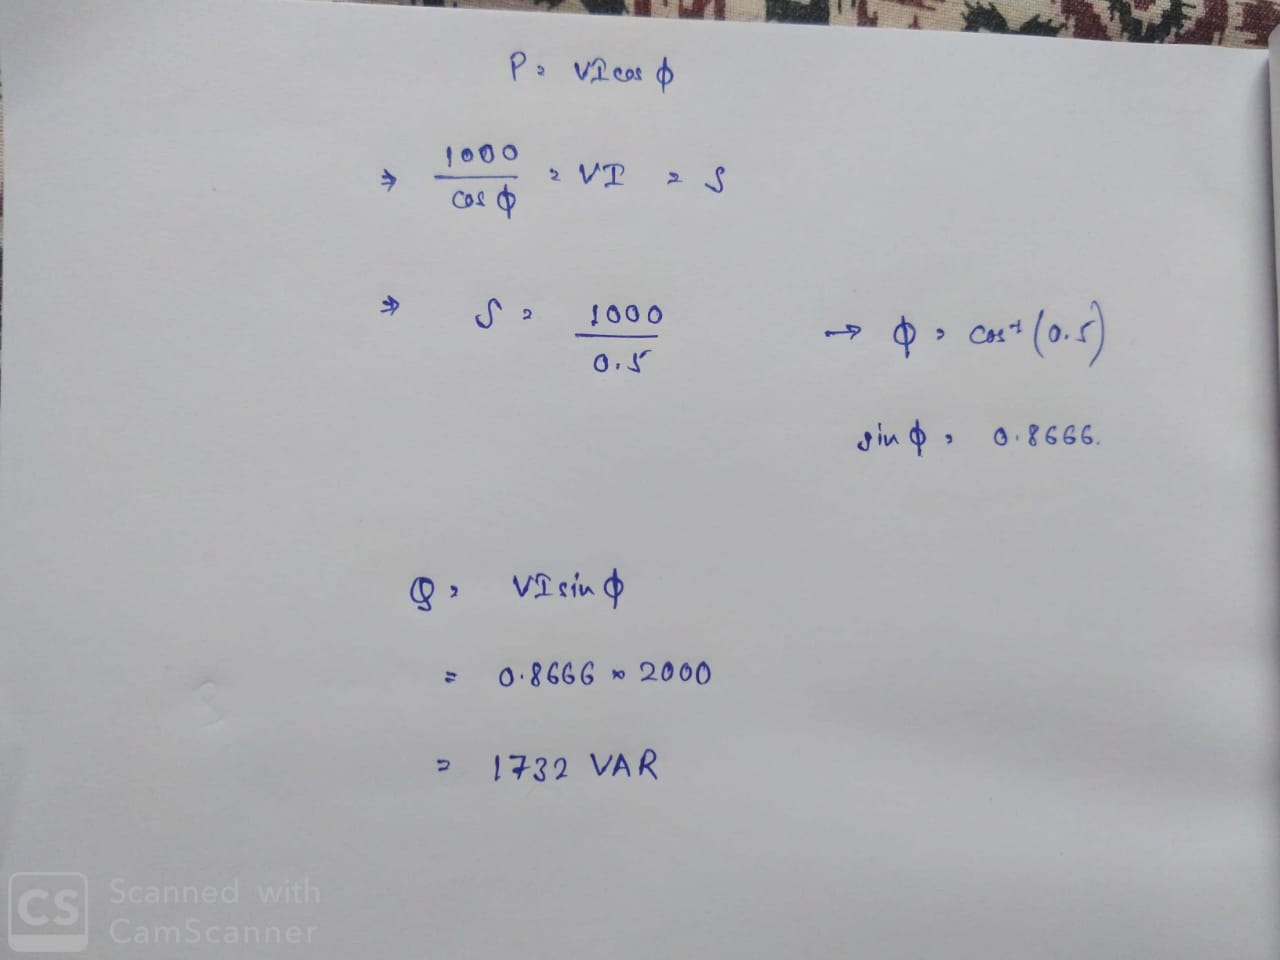 P = VI cos ϕ
⇒ 1000 / cos ϕ = VI = S
⇒ S = 1000 / 0.5 → ϕ = cos⁻¹ (0.5)
sin ϕ = 0.8666.
Q = VI sin ϕ
= 0.8666 × 2000
= 1732 VAR
CS Scanned with
CamScanner